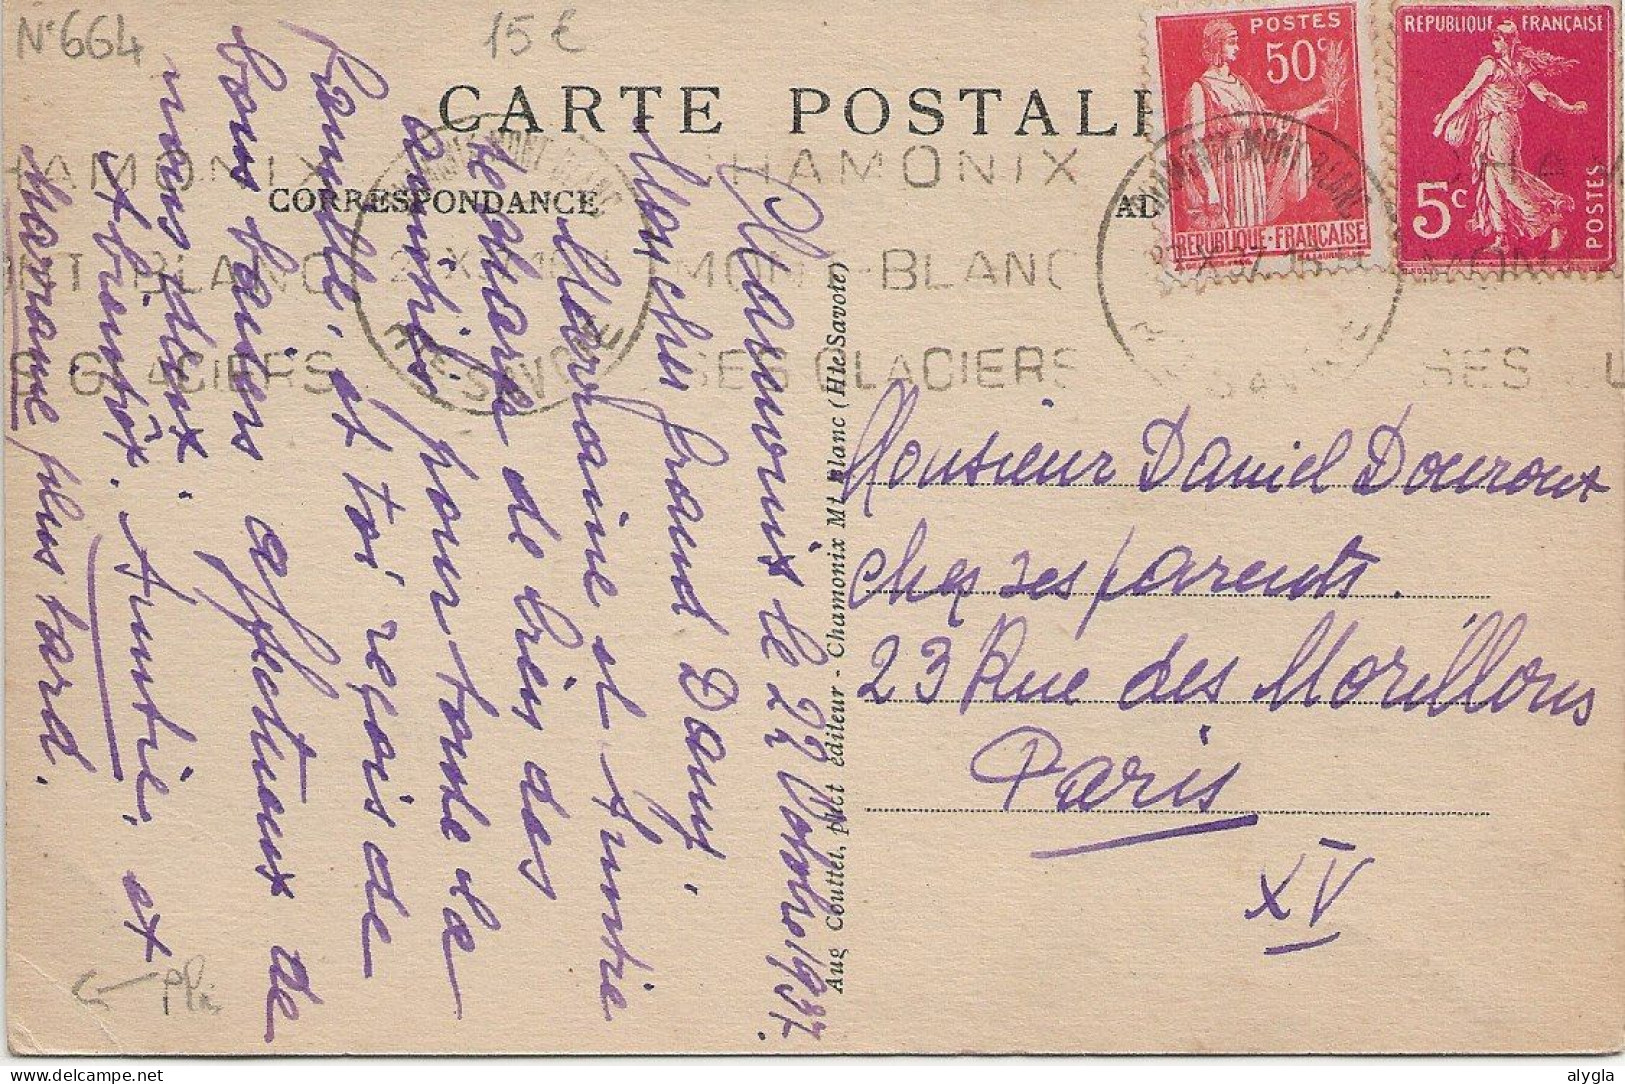 N° 664
15 €
CARTE POSTALE
CORRESPONDANCE
AD
POSTES
50c
REPUBLIQUE-FRANÇAISE
REPUBLIQUE FRANÇAISE
5c
POSTES
CHAMONIX MONT-BLANC
Hte SAVOIE
CHAMONIX
MONT-BLANC
SES GLACIERS
CHAMONIX MONT-BLANC
SAVOIE
Chamonix le 22 Octobre 1937.
Mon cher grand Dany,
Marraine et Auntie
te charge de très des
amitiés pour toute la
famille, et toi reçois de
bons baisers affectueux de
nous deux.
A bientôt. Auntie, et
Marraine plus tard.
Pli
Aug Couttet, phot éditeur - Chamonix Mt Blanc (Hte Savoie)
Monsieur Daniel Douroux
chez ses parents.
23 Rue des Morillons
Paris
XV
alygla